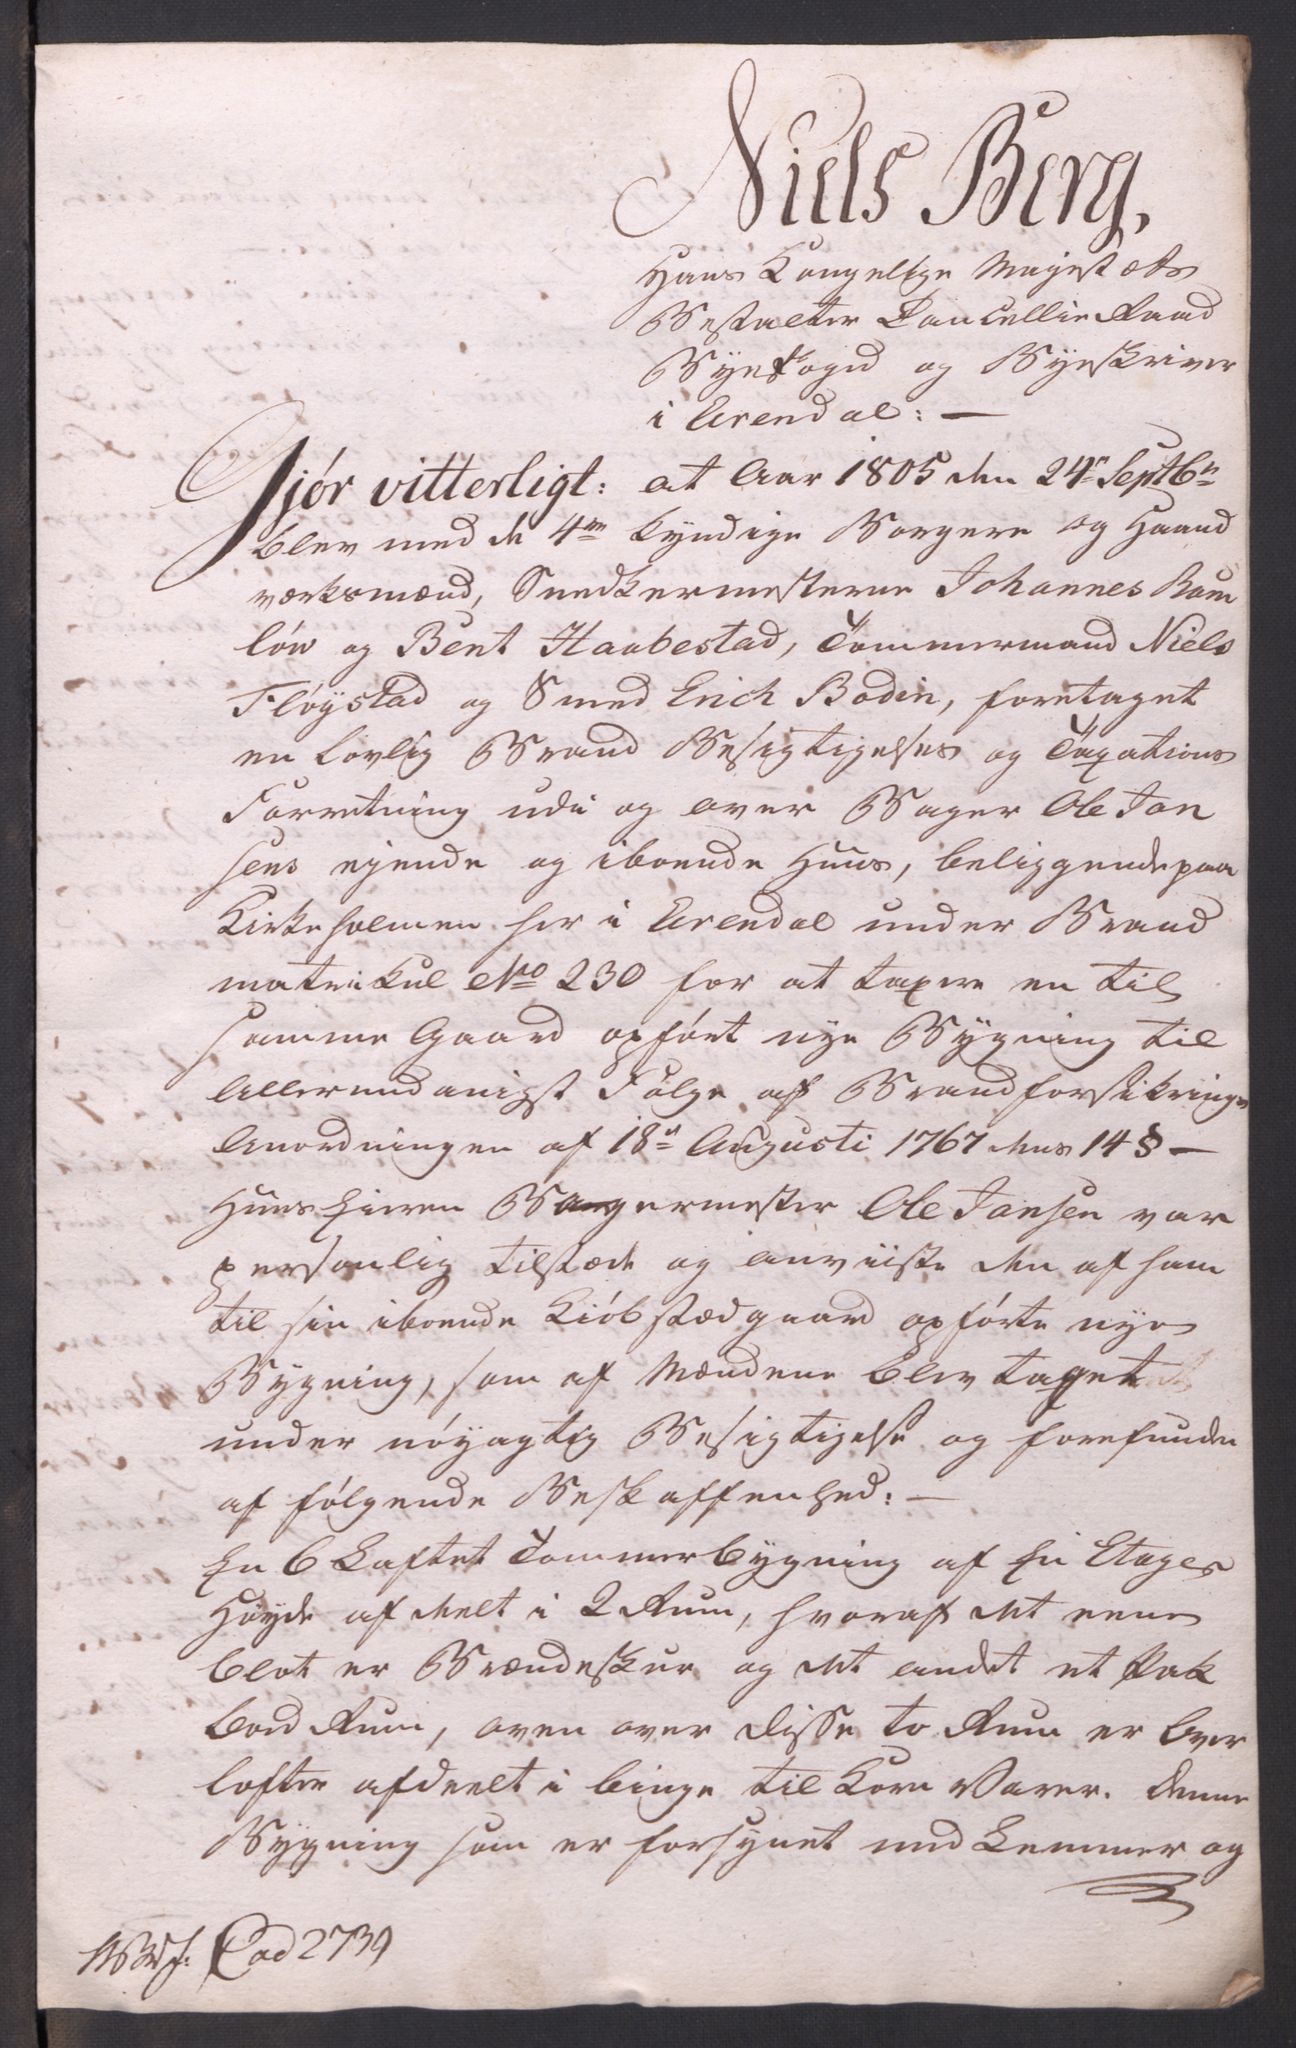 Niels Berg,
Hans Kongelige Majestæts
Bestalter Cancellie Raad
Byefoged og Byeskriver
i Arendal: —
Gjör vitterligt: at Aar 1805 den 24de Septbr
blev med de 4re kyndige Borgere og Haand
værksmænd, Snedkermesterne Johannes Rom
löw og Bent Haabestad, Tömmermand Niels
Flöystad og Smed Erich Bodin, foretaget
en Lovlig Brand Besigtigelses og Taxations
Forretning udi og over Bager Ole Jan
sens ejende og iboende Huus, beliggende paa
Kirkeholmen her i Arendal under Brand
matrikul No 230 for at taxere en til
samme Gaard opfört nye Bygning til
Allerunderdanigst Fölge af Brandforsikrings
Anordningen af 18de Augusti 1767 dens 14 § —
Huus Eieren Bagermester Ole Jansen var
personlig tilstæde og anviiste den af ham
til sin iboende Kiöbstædgaard opförte nye
Bygning, som af Mændene blev taget
under nöyagtig Besigtigelse og forefunden
af fölgende Beskaffenhed: —
En 6 Laftet Tömmerbygning af En Etages
Höyde afdeelt i 2 Rum, hvoraf det eene
blot er Brændeskur og det andet et Pak
bod Rum, oven over disse to Rum er Over
lofter afdeelt i binge til Korn Varer. Denne
Bygning som er forsynet med Lemmer og
Cad 2739